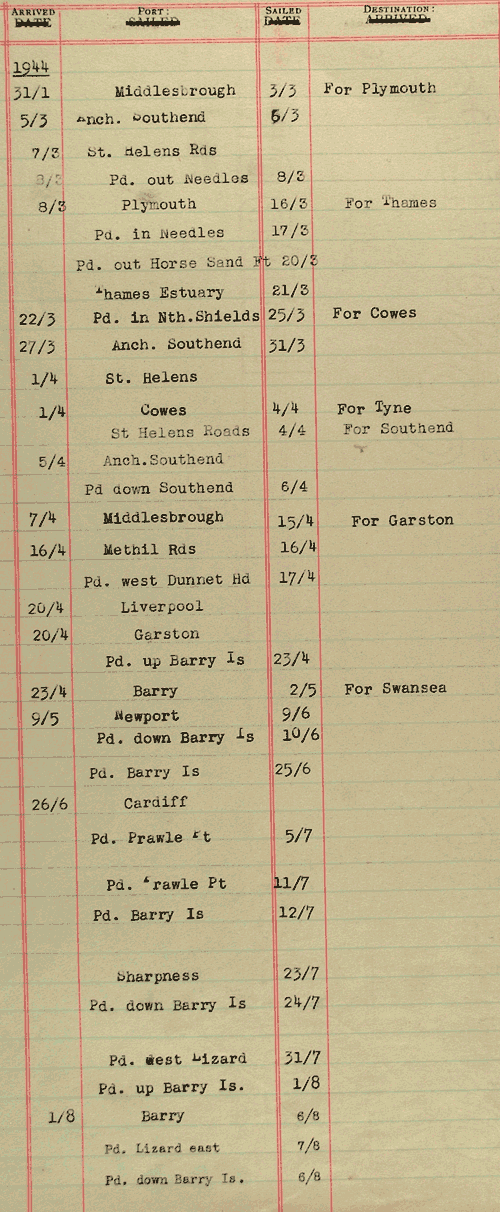 ARRIVED DATE PORT: SAILED SAILED DATE DESTINATION: ARRIVED
1944
31/1 Middlesbrough 3/3 For Plymouth
5/3 Anch. Southend 6/3
7/3 St. Helens Rds
8/3 Pd. out Needles 8/3
8/3 Plymouth 16/3 For Thames
Pd. in Needles 17/3
Pd. out Horse Sand Ft 20/3
Thames Estuary 21/3
22/3 Pd. in Nth.Shields 25/3 For Cowes
27/3 Anch. Southend 31/3
1/4 St. Helens
1/4 Cowes 4/4 For Tyne
St Helens Roads 4/4 For Southend
5/4 Anch.Southend
Pd down Southend 6/4
7/4 Middlesbrough 15/4 For Garston
16/4 Methil Rds 16/4
Pd. west Dunnet Hd 17/4
20/4 Liverpool
20/4 Garston
Pd. up Barry Is 23/4
23/4 Barry 2/5 For Swansea
9/5 Newport 9/6
Pd. down Barry Is 10/6
Pd. Barry Is 25/6
26/6 Cardiff
Pd. Prawle Pt 5/7
Pd. Prawle Pt 11/7
Pd. Barry Is 12/7
Sharpness 23/7
Pd. down Barry Is 24/7
Pd. west Lizard 31/7
Pd. up Barry Is. 1/8
1/8 Barry 6/8
Pd. Lizard east 7/8
Pd. down Barry Is. 6/8